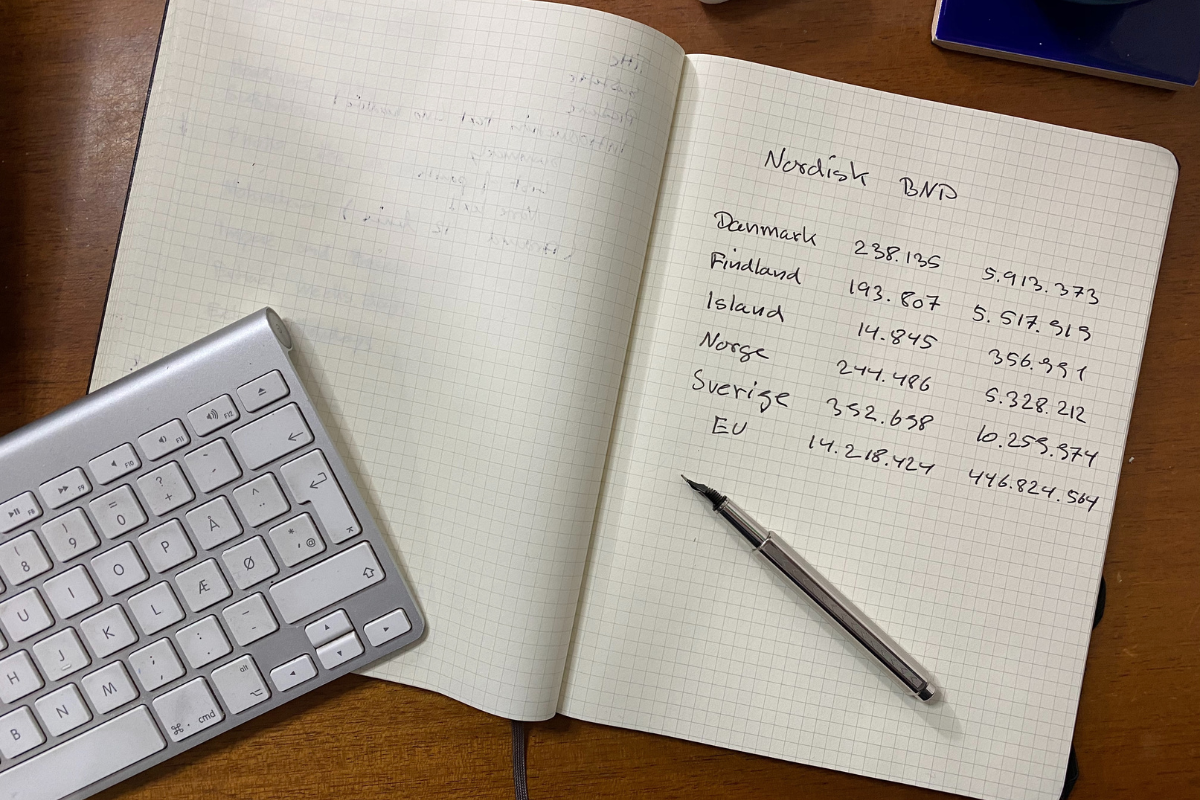 Nordisk BNP
Danmark 238.135 5.913.373
Findland 193.807 5.517.919
Island 14.845 356.991
Norge 244.486 5.328.212
Sverige 10.259.974
EU 14.218.424 446.824.564
F8 F9 F10 F11 F12
( 8 ) 9 = 0 ? + ` ´
U I O P Å ^ ¨
H J K L Æ Ø * ' @
B N M ; , : . _ -
cmd alt